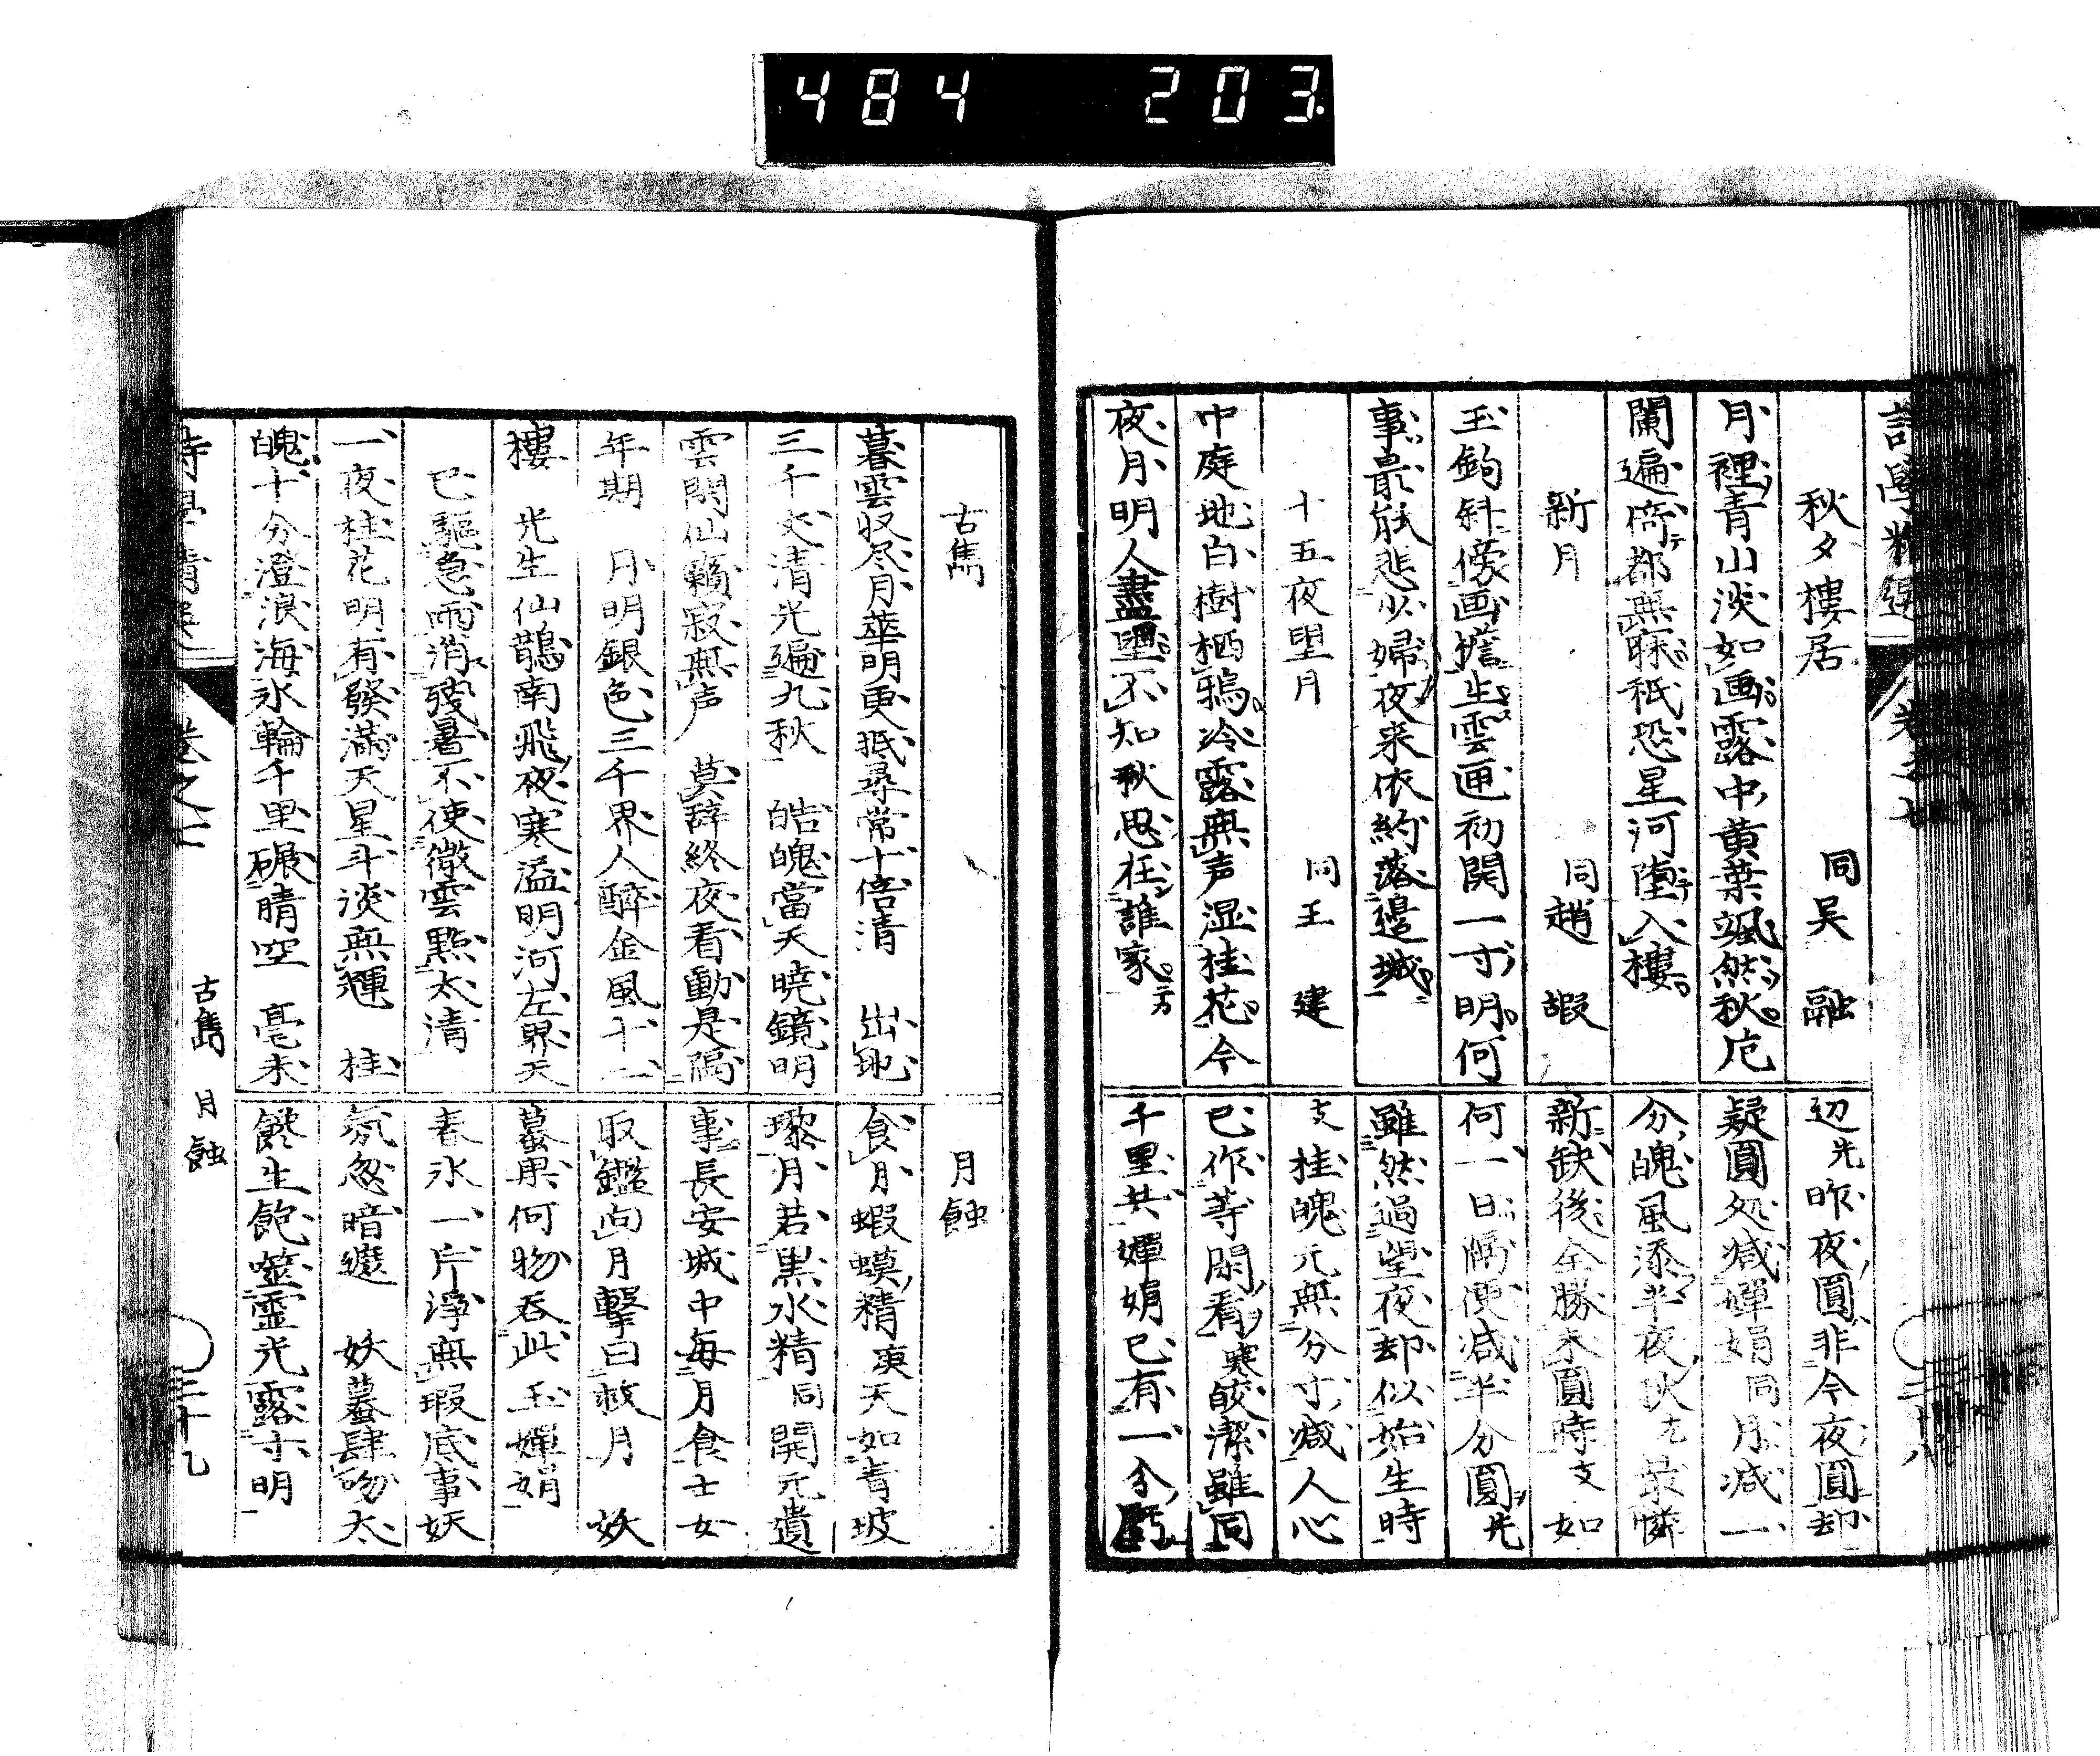 484 203
詩學精選 卷之七
秋夕樓居 同吴融
月裡青山淡如画露中黄葉颯然秋危
闌遍倚都無寐秖恐星河墮入樓
新月 同趙嘏
玉鉤斜傍画檐生雲匣初開一寸明何
事最能悲少婦夜来依約落邉城
十五夜朢月 同王建
中庭地白樹栖鴉冷露無声湿桂花今
夜月明人盡朢不知秋思在誰家
辺先昨夜圓非今夜圓却
疑圓処减嬋娟同月减一
分魄風添半夜秋尤最憐
新缺後全勝未圓時支如
何一日隔便减半分圓先
雖然過望夜却似始生時
支桂魄元無分寸减人心
已作等閑看寒皎潔雖同
千里共嬋娟已有一分虧
古雋
暮雲収尽月華明更抵尋常十倍清 出地
三千丈清光遍九秋 皓魄當天暁鏡明
雲開仙籟寂無声 莫辞終夜看動是隔
年期 月明銀色三千界人醉金風十二
樓 光生仙鵲南飛夜寒溢明河左界天
已驅急雨消残暑不使微雲點太清
一夜桂花明有發滿天星斗淡無輝 桂
魄十分澄浪海氷輪千里碾晴空 毫末
月蝕
食月蝦蟆精庚天如青玻
瓈月若黒水精同開元遺
事長安城中毎月食士女
取鑑向月撃曰救月 妖
蟇果何物呑此玉嬋娟
春氷一片浄無瑕底事妖
氛忽暗纒 妖蟇肆吻太
饞生飽噬霊光露寸明
詩學精選 卷之七 古雋 月蝕 二十九